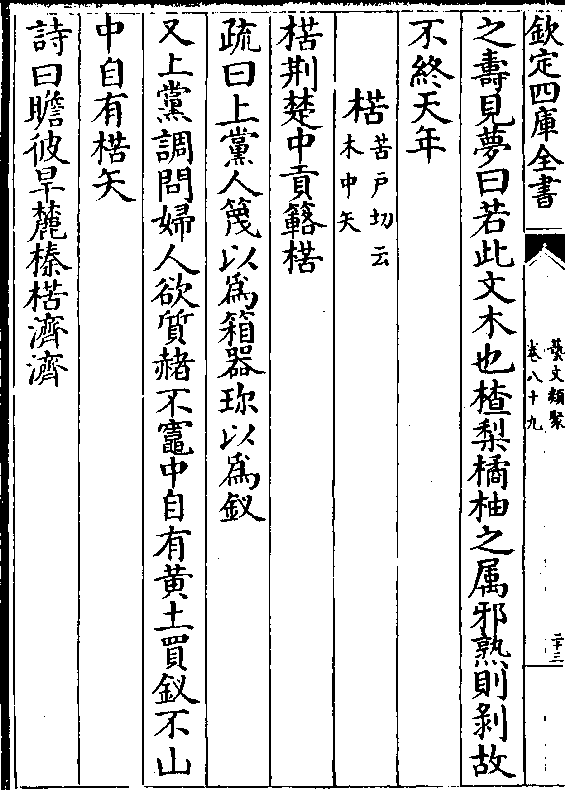 欽定四庫全書
藝文類聚
卷八十九
二十三
之壽見夢曰若此文木也楂梨橘柚之属邪熟則剥故
不終天年
楛苦戸切云木中矢
楛荆楚中貢簵楛
疏曰上黨人篾以爲箱器珎以爲釵
又上黨調問婦人欲質赭不竈中自有黄土買釵不山
中自有楛矢
詩曰瞻彼旱麓榛楛濟濟